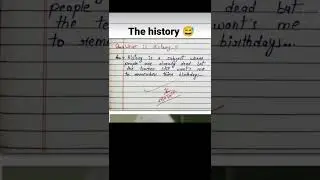 people
dead but
the te
want's me
to reme
birthdays...
The history 😅
is History
Ans: History is a subject whose
people are already dead but
the teacher still want's me
to remember their birthdays...